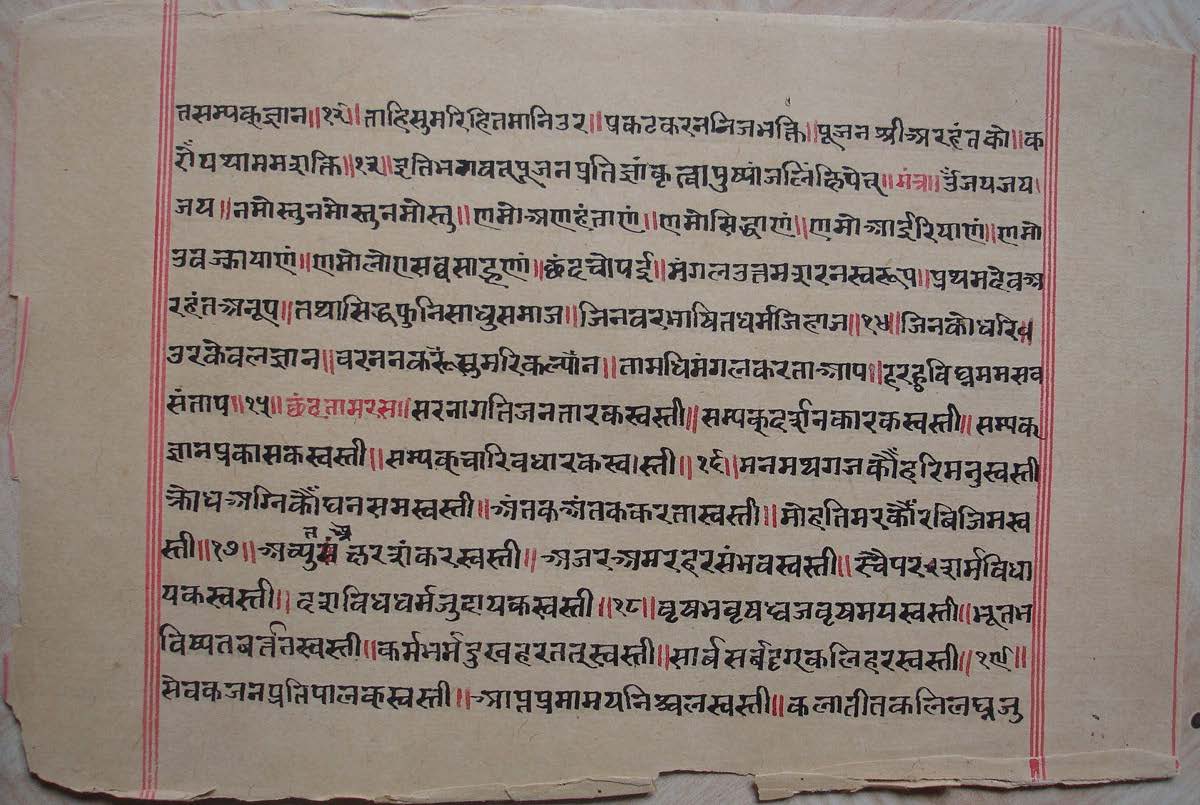 तसम्पक्ज्ञान॥१२॥ताहिसुमरिहितमानिउर॥प्रकटकरननिजभक्ति॥पूजनश्रीअरहंतको॥क
रौंयथाममशक्ति॥१३॥इतिभगवत्पूजनप्रतिज्ञांकृत्वापुष्पांजलिंक्षिपेत्॥मंत्र॥ॐजयजय
जय॥नमोस्तुनमोस्तुनमोस्तु॥णमोअरहंताणं॥णमोसिद्धाणं॥णमोआईरियाणं॥णमो
उवज्झायाणं॥णमोलोएसव्वसाहूणं॥छंदचोपई॥मंगलउत्तमशरनस्वरूप॥प्रथमदेवअ
रहंतअनूप॥तथासिद्धफुनिसाधुसमाज॥जिनवरभाषितधर्मजिहाज॥१४॥जिनकोंधरि
उरकेवलज्ञान॥वरननकरूंसुमरिकल्यांन॥तामधिमंगलकरताआप॥हरहुविघ्नममसव
संताप॥१५॥छंदतामरस॥सरनागतिजनतारकस्वस्ती॥सम्पक्दर्शनकारकस्वस्ती॥सम्पक्
ज्ञानप्रकासकस्वस्ती॥सम्पक्चारित्रधारकस्वस्ती॥१६॥मनमथगजकौंहरिमनुस्वस्ती
क्रोधअग्निकौंघनसमस्वस्ती॥अंतकअंतककरतास्वस्ती॥मोहतिमरकौंरबिजिमस्व
स्ती॥१७॥शंकरस्वस्ती॥अजरअमरहरसंभवस्वस्ती॥शर्मविधा
यकस्वस्ती॥दशविधधर्मजुदायकस्वस्ती॥१८॥वृषभवृषध्वजवृषमयस्वस्ती॥भूतभ
विष्यतबर्ततस्वस्ती॥कर्मभर्मदुखहरततस्वस्ती॥सार्बसर्बदृगकलिहरस्वस्ती॥१९॥
सेवकजनप्रतिपालकस्वस्ती॥आप्तप्रमामयनिश्चलस्वस्ती॥कलातीतकलिलघ्नजु